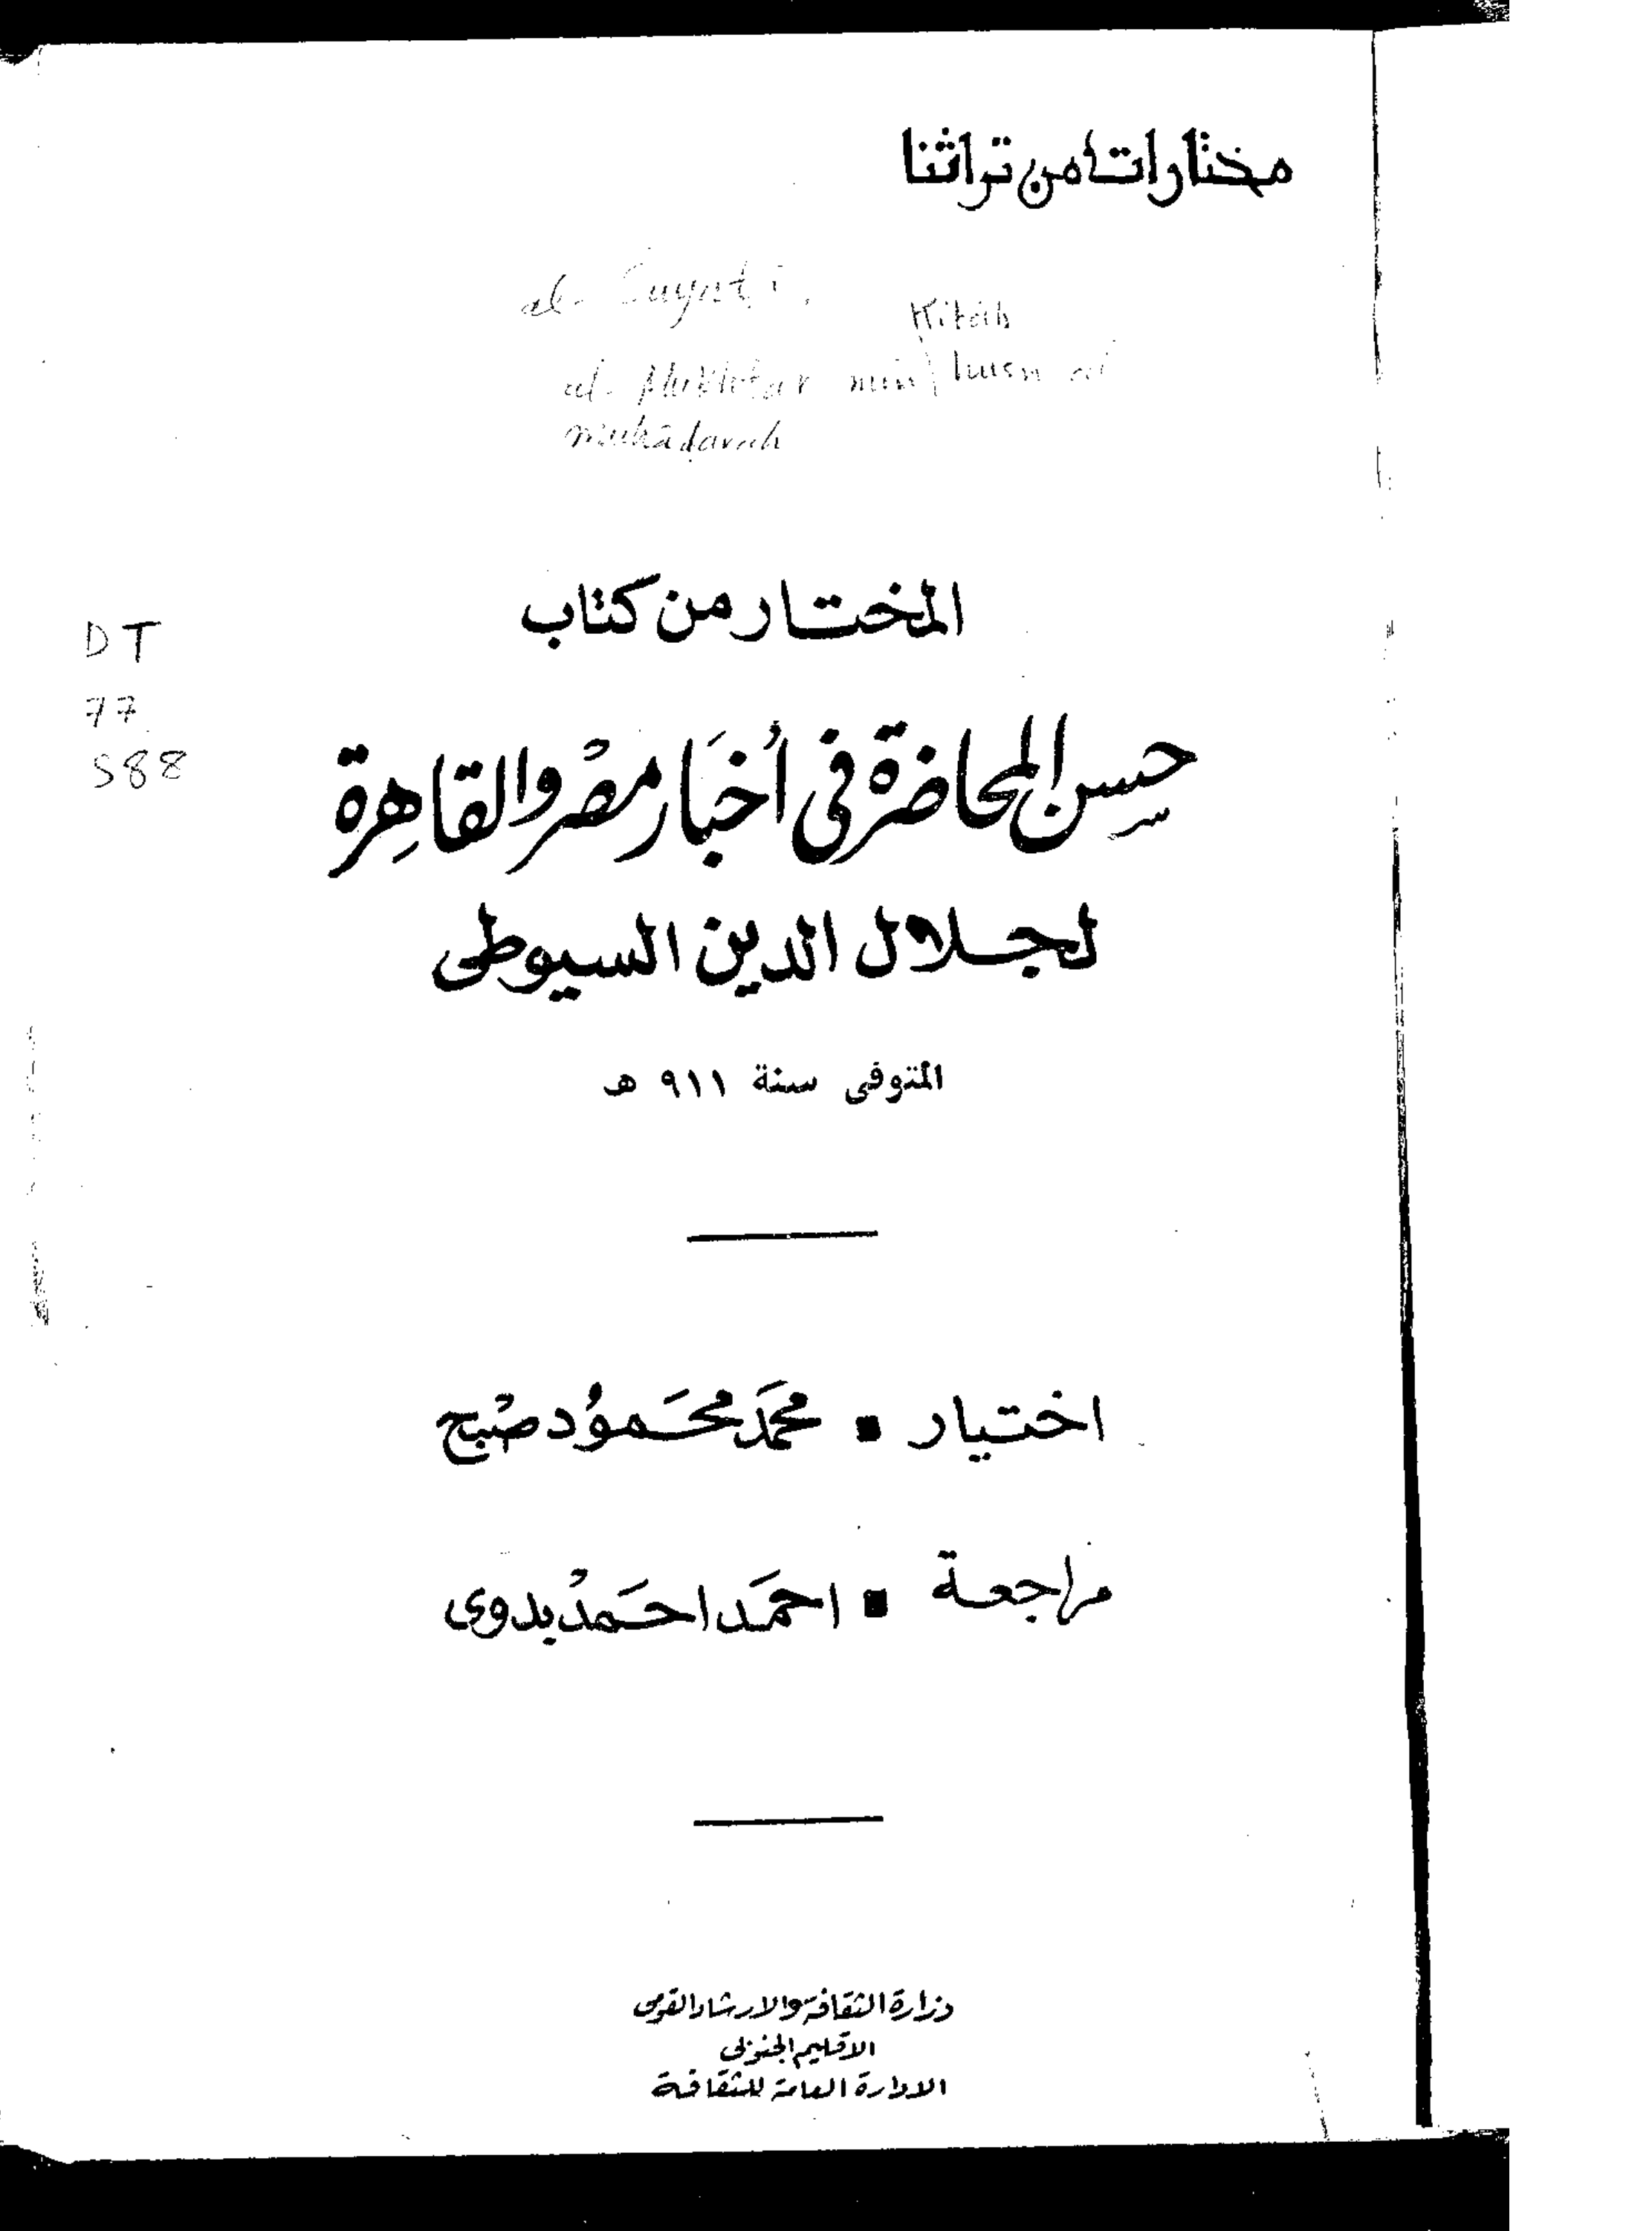 مختارات من تراثنا
al- Suyuti,
Kitāb
al- Mukhtar min husn al
muhāḍarah
المختار من كتاب
DT
77
S88
حسن المحاضرة فى أُخبَار مصْر والقاهِرة
لجلال الدين السيوطى
المتوفى سنة ٩١١ هـ
اختيار ▪ محمَّد محَمُود صبْح
مراجعة ▪ احمَد احَمدْ بدوى
وزارة الثقافة والارشاد القومى
الاقليم الجنوبى
الادارة العامة للثقافة